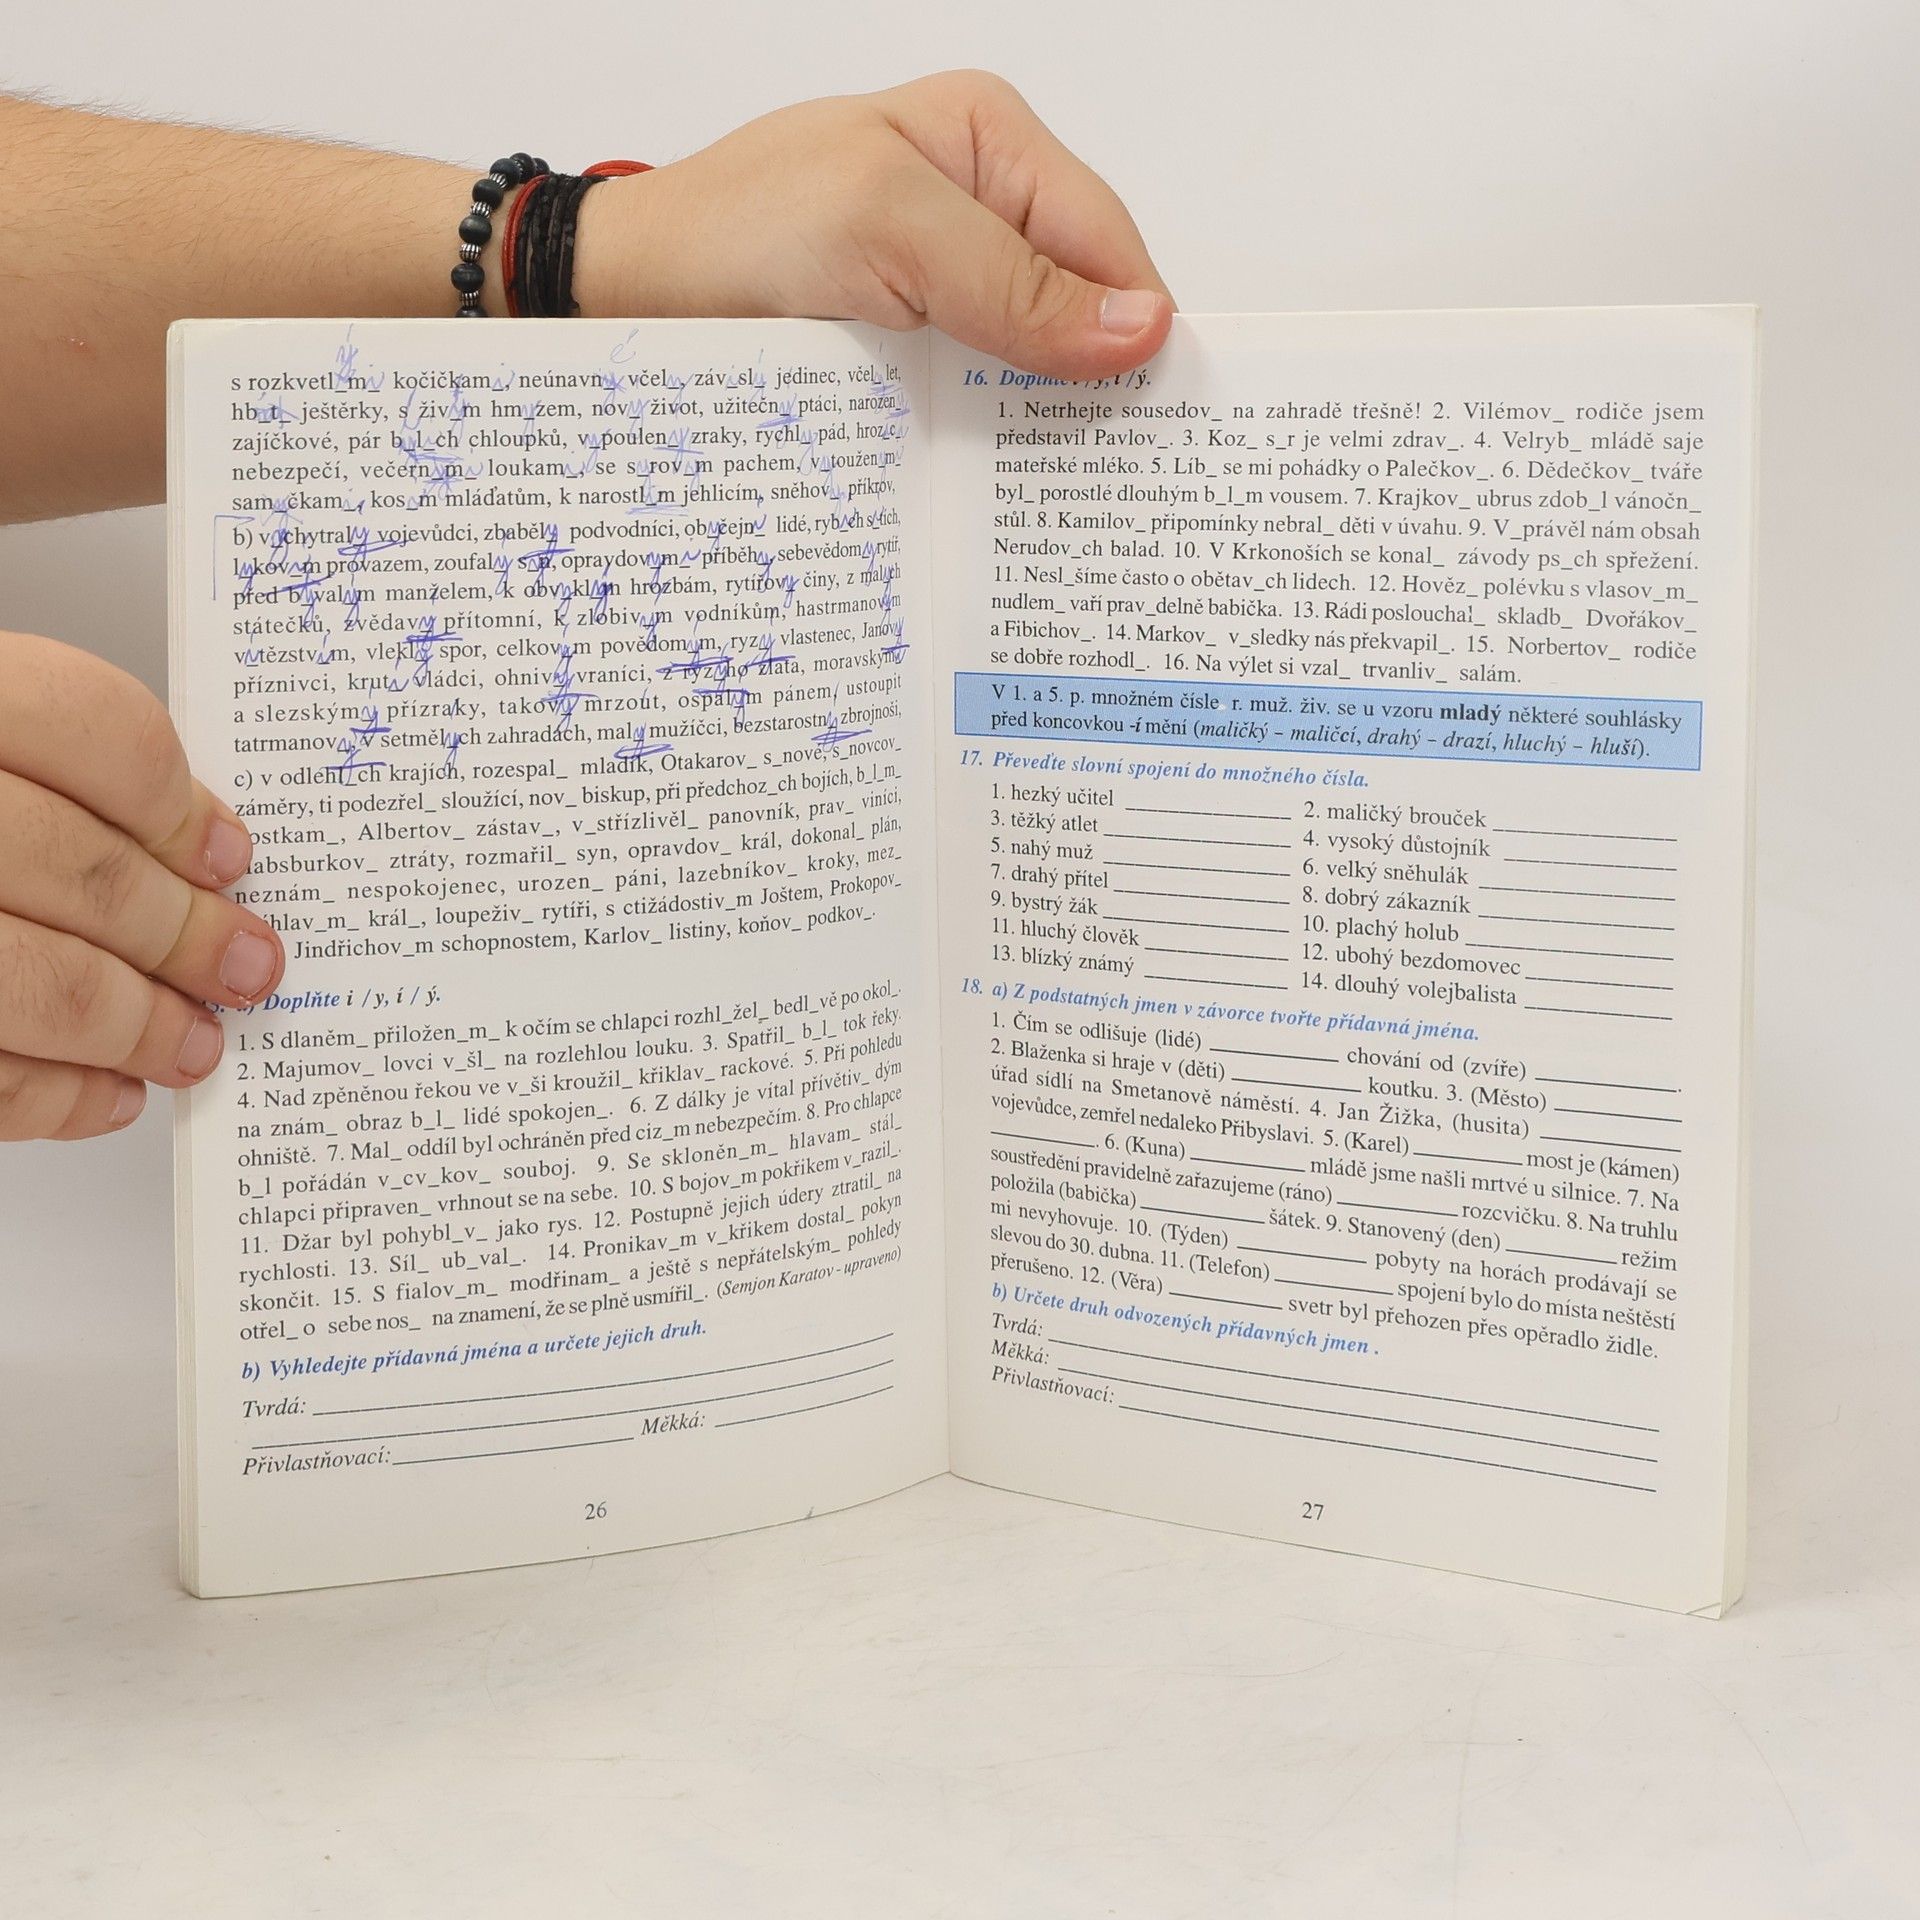 s rozkvetl_m_ kočičkam_, neúnavn_ včel_, záv_sl_ jedinec, včel_ let,
hb_t_ ještěrky, s živ_m hm_zem, nov_ život, užitečn_ ptáci, narozen_
zajíčkové, pár b_l_ch chloupků, v_poulen_ zraky, rychl_ pád, hroz_c_
nebezpečí, večern_m_ loukam_, se s_rov_m pachem, v_toužen_m_
sam_čkam_, kos_m mláďatům, k narostl_m jehlicím, sněhov_ příkrov,
b) v_chytral_ vojevůdci, zbaběl_ podvodníci, ob_čejn_ lidé, ryb_ch s_tích,
l_kov_m provazem, zoufal_ s_n, opravdov_m_ příběh_, sebevědom_ rytíř,
před b_val_m manželem, k obv_kl_m hrozbám, rytířov_ činy, z mal_ch
státečků, zvědav_ přítomní, k zlobiv_m vodníkům, hastrmanov_m
v_tězstv_m, vlekl_ spor, celkov_m povědom_m, ryz_ vlastenec, Janov_
příznivci, krut_ vládci, ohniv_ vraníci, z ryz_ho zlata, moravským_
a slezským_ přízraky, takov_ mrzout, ospal_m pánem, ustoupit
tatrmanov_, v setměl_ch zahradách, mal_ mužíčci, bezstarostn_ zbrojnoši,
c) v odlehl_ch krajích, rozespal_ mladík, Otakarov_ s_nové, s_novcov_
záměry, ti podezřel_ sloužící, nov_ biskup, při předchoz_ch bojích, b_l_m_
ostkam_, Albertov_ zástav_, v_střízlivěl_ panovník, prav_ viníci,
absburkov_ ztráty, rozmařil_ syn, opravdov_ král, dokonal_ plán,
neznám_ nespokojenec, urozen_ páni, lazebníkov_ kroky, mez_
hlav_m_ král_, loupeživ_ rytíři, s ctižádostiv_m Joštem, Prokopov_
Jindřichov_m schopnostem, Karlov_ listiny, koňov_ podkov_.
a) Doplňte i / y, í / ý.
1. S dlaněm_ přiložen_m_ k očím se chlapci rozhl_žel_ bedl_vě po okol_.
2. Majumov_ lovci v_šl_ na rozlehlou louku. 3. Spatřil_ b_l_ tok řeky.
4. Nad zpěněnou řekou ve v_ši kroužil_ křiklav_ rackové. 5. Při pohledu
na znám_ obraz b_l_ lidé spokojen_. 6. Z dálky je vítal přívětiv_ dým
ohniště. 7. Mal_ oddíl byl ochráněn před ciz_m nebezpečím. 8. Pro chlapce
b_l pořádán v_cv_kov_ souboj. 9. Se skloněn_m_ hlavam_ stál_
chlapci připraven_ vrhnout se na sebe. 10. S bojov_m pokřikem v_razil_.
11. Džar byl pohybl_v_ jako rys. 12. Postupně jejich údery ztratil_ na
rychlosti. 13. Síl_ ub_val_. 14. Pronikav_m v_křikem dostal_ pokyn
skončit. 15. S fialov_m_ modřinam_ a ještě s nepřátelským_ pohledy
otřel_ o sebe nos_ na znamení, že se plně usmířil_. (Semjon Karatov - upraveno)
b) Vyhledejte přídavná jména a určete jejich druh.
Tvrdá:
Měkká:
Přivlastňovací:
26
16. Doplňte i / y, í / ý.
1. Netrhejte sousedov_ na zahradě třešně! 2. Vilémov_ rodiče jsem
představil Pavlov_. 3. Koz_ s_r je velmi zdrav_. 4. Velryb_ mládě saje
mateřské mléko. 5. Líb_ se mi pohádky o Palečkov_. 6. Dědečkov_ tváře
byl_ porostlé dlouhým b_l_m vousem. 7. Krajkov_ ubrus zdob_l vánočn_
stůl. 8. Kamilov_ připomínky nebral_ děti v úvahu. 9. V_právěl nám obsah
Nerudov_ch balad. 10. V Krkonoších se konal_ závody ps_ch spřežení.
11. Nesl_šíme často o obětav_ch lidech. 12. Hověz_ polévku s vlasov_m_
nudlem_ vaří prav_delně babička. 13. Rádi poslouchal_ skladb_ Dvořákov_
a Fibichov_. 14. Markov_ v_sledky nás překvapil_. 15. Norbertov_ rodiče
se dobře rozhodl_. 16. Na výlet si vzal_ trvanliv_ salám.
V 1. a 5. p. množném čísle r. muž. živ. se u vzoru mladý některé souhlásky
před koncovkou -í mění (maličký – maličcí, drahý – drazí, hluchý – hluší).
17. Převeďte slovní spojení do množného čísla.
1. hezký učitel ____ 2. maličký brouček ____
3. těžký atlet ____ 4. vysoký důstojník ____
5. nahý muž ____ 6. velký sněhulák ____
7. drahý přítel ____ 8. dobrý zákazník ____
9. bystrý žák ____ 10. plachý holub ____
11. hluchý člověk ____ 12. ubohý bezdomovec ____
13. blízký známý ____ 14. dlouhý volejbalista ____
18. a) Z podstatných jmen v závorce tvořte přídavná jména.
1. Čím se odlišuje (lidé) ____ chování od (zvíře) ____.
2. Blaženka si hraje v (děti) ____ koutku. 3. (Město) ____
úřad sídlí na Smetanově náměstí. 4. Jan Žižka, (husita) ____
vojevůdce, zemřel nedaleko Přibyslavi. 5. (Karel) ____ most je (kámen)
____. 6. (Kuna) ____ mládě jsme našli mrtvé u silnice. 7. Na
soustředění pravidelně zařazujeme (ráno) ____ rozcvičku. 8. Na truhlu
položila (babička) ____ šátek. 9. Stanovený (den) ____ režim
mi nevyhovuje. 10. (Týden) ____ pobyty na horách prodávají se
slevou do 30. dubna. 11. (Telefon) ____ spojení bylo do místa neštěstí
přerušeno. 12. (Věra) ____ svetr byl přehozen přes opěradlo židle.
b) Určete druh odvozených přídavných jmen .
Tvrdá:
Měkká:
Přivlastňovací:
27